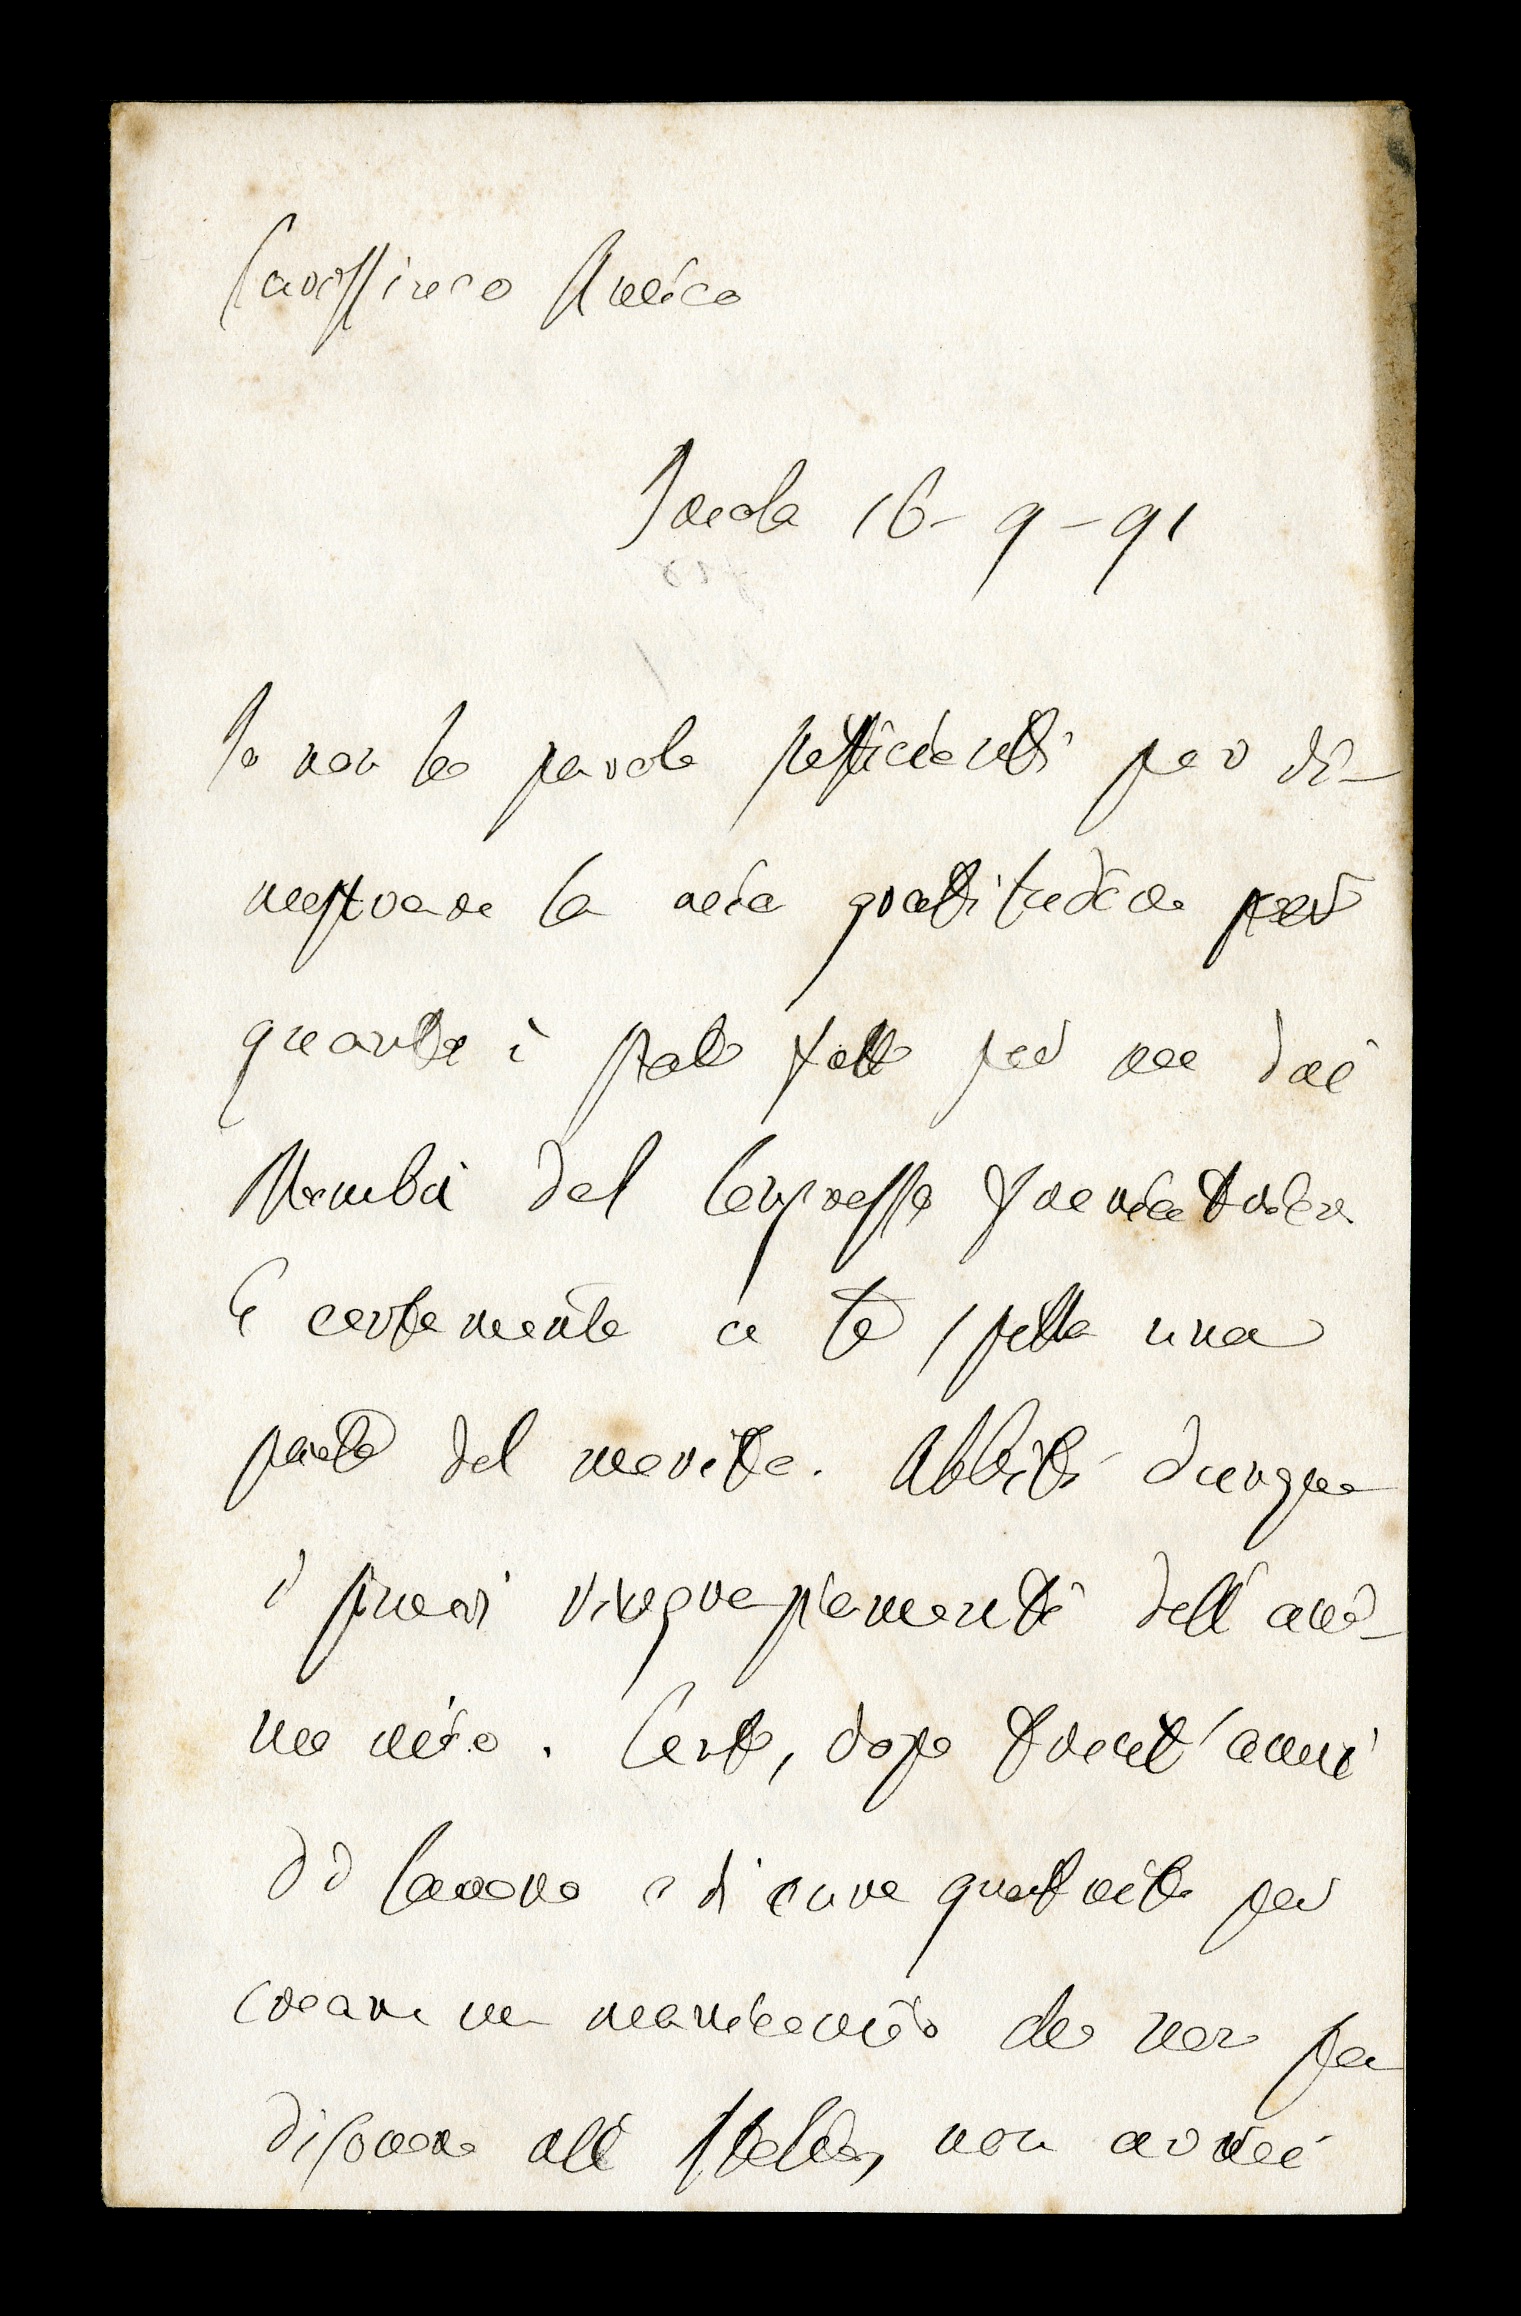 Carissimo Amico
Imola 16-9-91
Io non ho parole sufficienti per di-
mostrare la mia gratitudine per
quanto è stato fatto per me dai
Membri del Congresso Freniatrico
E certamente a te spetta una
parte del merito. Abbiti dunque
i sinceri ringraziamenti dell'ani-
mo mio. Certo, dopo trent'anni
di lavoro e di cure gratuite per
creare un manicomio che non fa
disonore all'Italia, non avrei